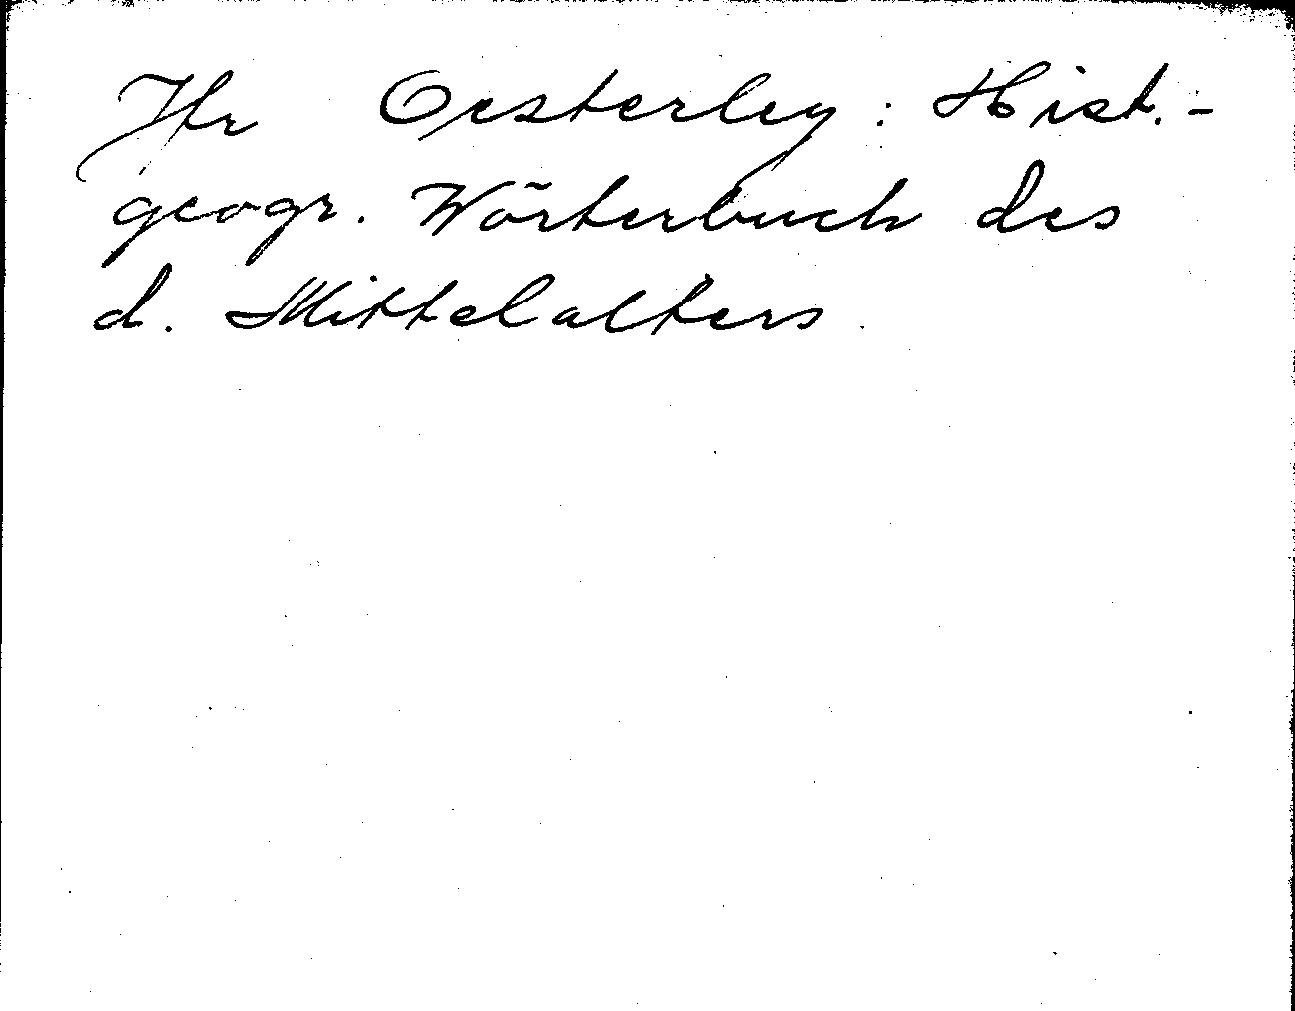 Jfr Oesterley: Hist.-
geogr. Wörterbuch des
d. Mittelalters